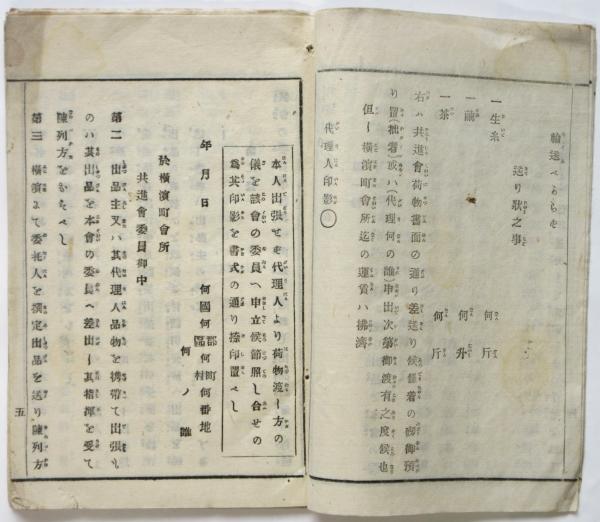 輸送べからを
送り狀之事
一生糸 何斤
一繭 何升
一茶 何斤
右ハ共進會荷物書面の通り差送り候着の砌御預
り置(拙者)或ハ(代理何の誰)申出次第御渡有之度候也
但し橫濱町會所迄の運賃ハ拂濟
代理人印影
本人出張せず代理人より荷物渡し方の
儀を該會の委員へ申立候節照し合せの
爲其印影を書式の通り捺印置べし
年月日 何國何郡區何町村何番地
何ノ誰
於橫濱町會所
共進會委員御中
第二 出品主又ハ其代理人品物を携帶て出張も
のハ其出品を本會の委員へ差出し其指揮を受て
陳列方をかたべし
第三 橫濱よて委托人を撰定出品を送り陳列方
五